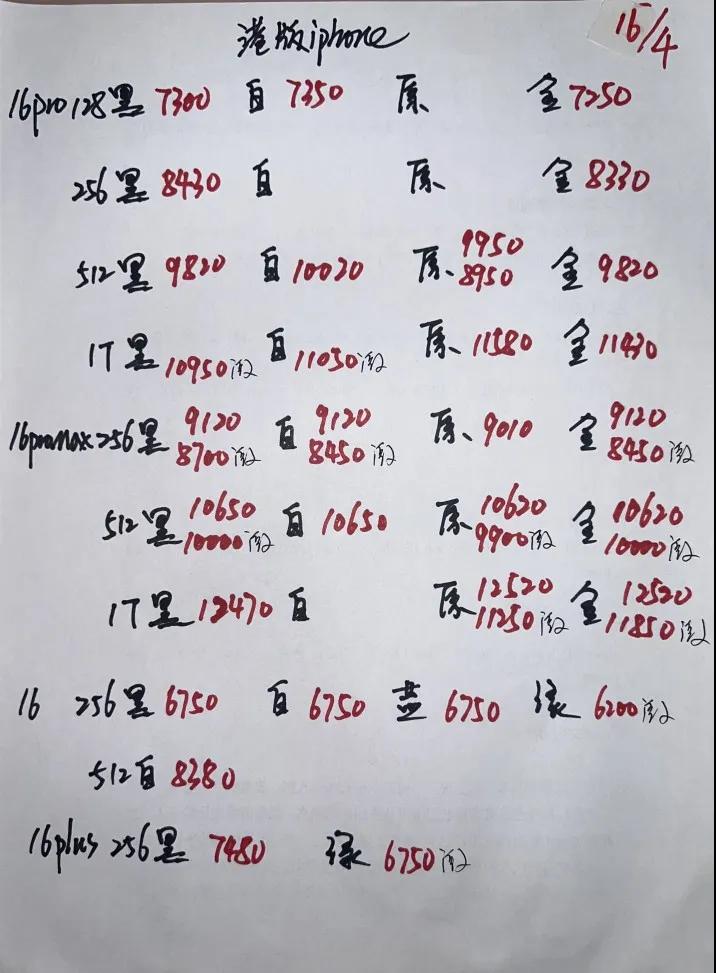 港版iphone 16/4
16pro 128黑 7300 白 7350 原、 金 7250
256黑 8430 白 原、 金 8330
512黑 9820 白 10020 原、 9950 8950 金 9820
1T黑 10950激 白 11050激 原、 11580 金 11430
16promax 256黑 9120 8700激 白 9120 8450激 原、 9010 金 9120 8450激
512黑 10650 10000激 白 10650 原、 10620 9900激 金 10620 10000激
1T黑 12470 白 原、 12520 11250激 金 12520 11850激
16 256黑 6750 白 6750 蓝 6750 绿 6200激
512白 8380
16plus 256黑 7480 绿 6750激